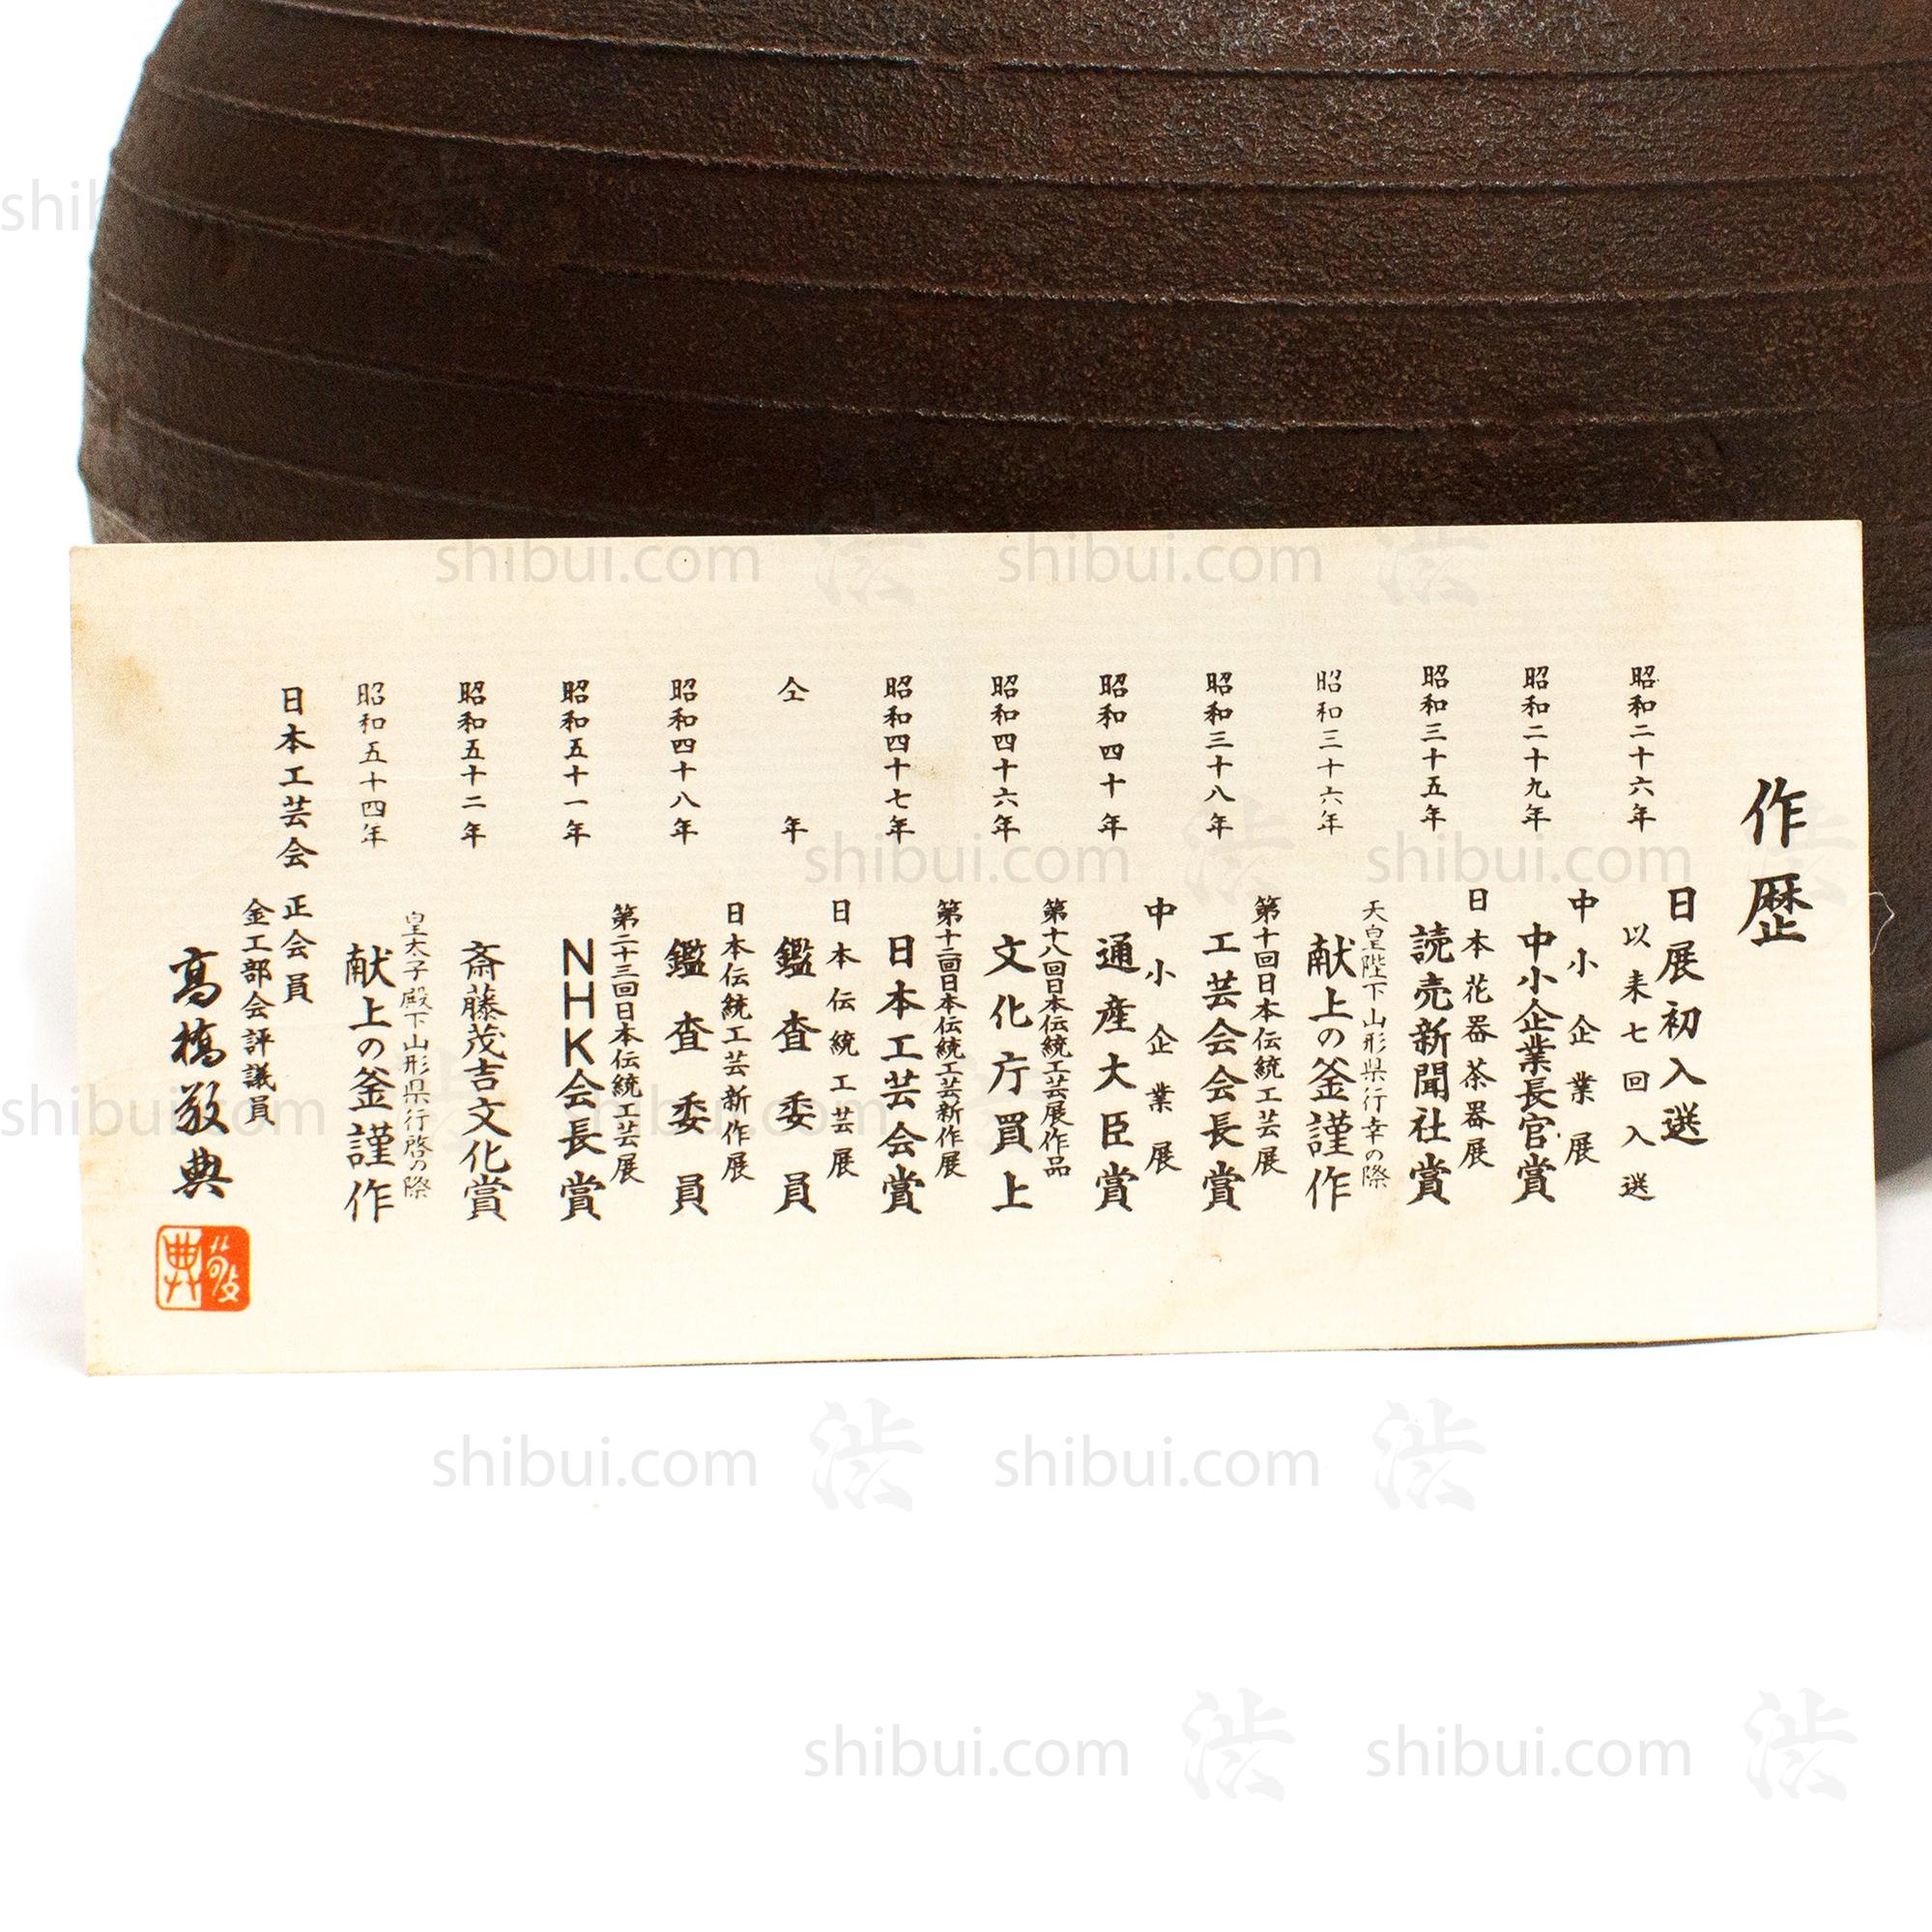 作歴
昭和二十六年 日展初入選
以来七回入選
昭和二十九年 中小企業展
中小企業長官賞
昭和三十五年 日本花器茶器展
読売新聞社賞
昭和三十六年 天皇陛下山形県行幸の際
献上の釜謹作
昭和三十八年 第十回日本伝統工芸展
工芸会会長賞
昭和四十年 中小企業展
通産大臣賞
昭和四十六年 第十八回日本伝統工芸展作品
文化庁買上
昭和四十七年 第十二回日本伝統工芸新作展
日本工芸会賞
仝年 日本伝統工芸展
鑑査委員
昭和四十八年 日本伝統工芸新作展
鑑査委員
昭和五十一年 第二十三回日本伝統工芸展
NHK会長賞
昭和五十二年 斎藤茂吉文化賞
昭和五十四年 皇太子殿下山形県行啓の際
献上の釜謹作
日本工芸会 正会員
金工部会評議員
高橋敬典
敬典
shibui.com 渋